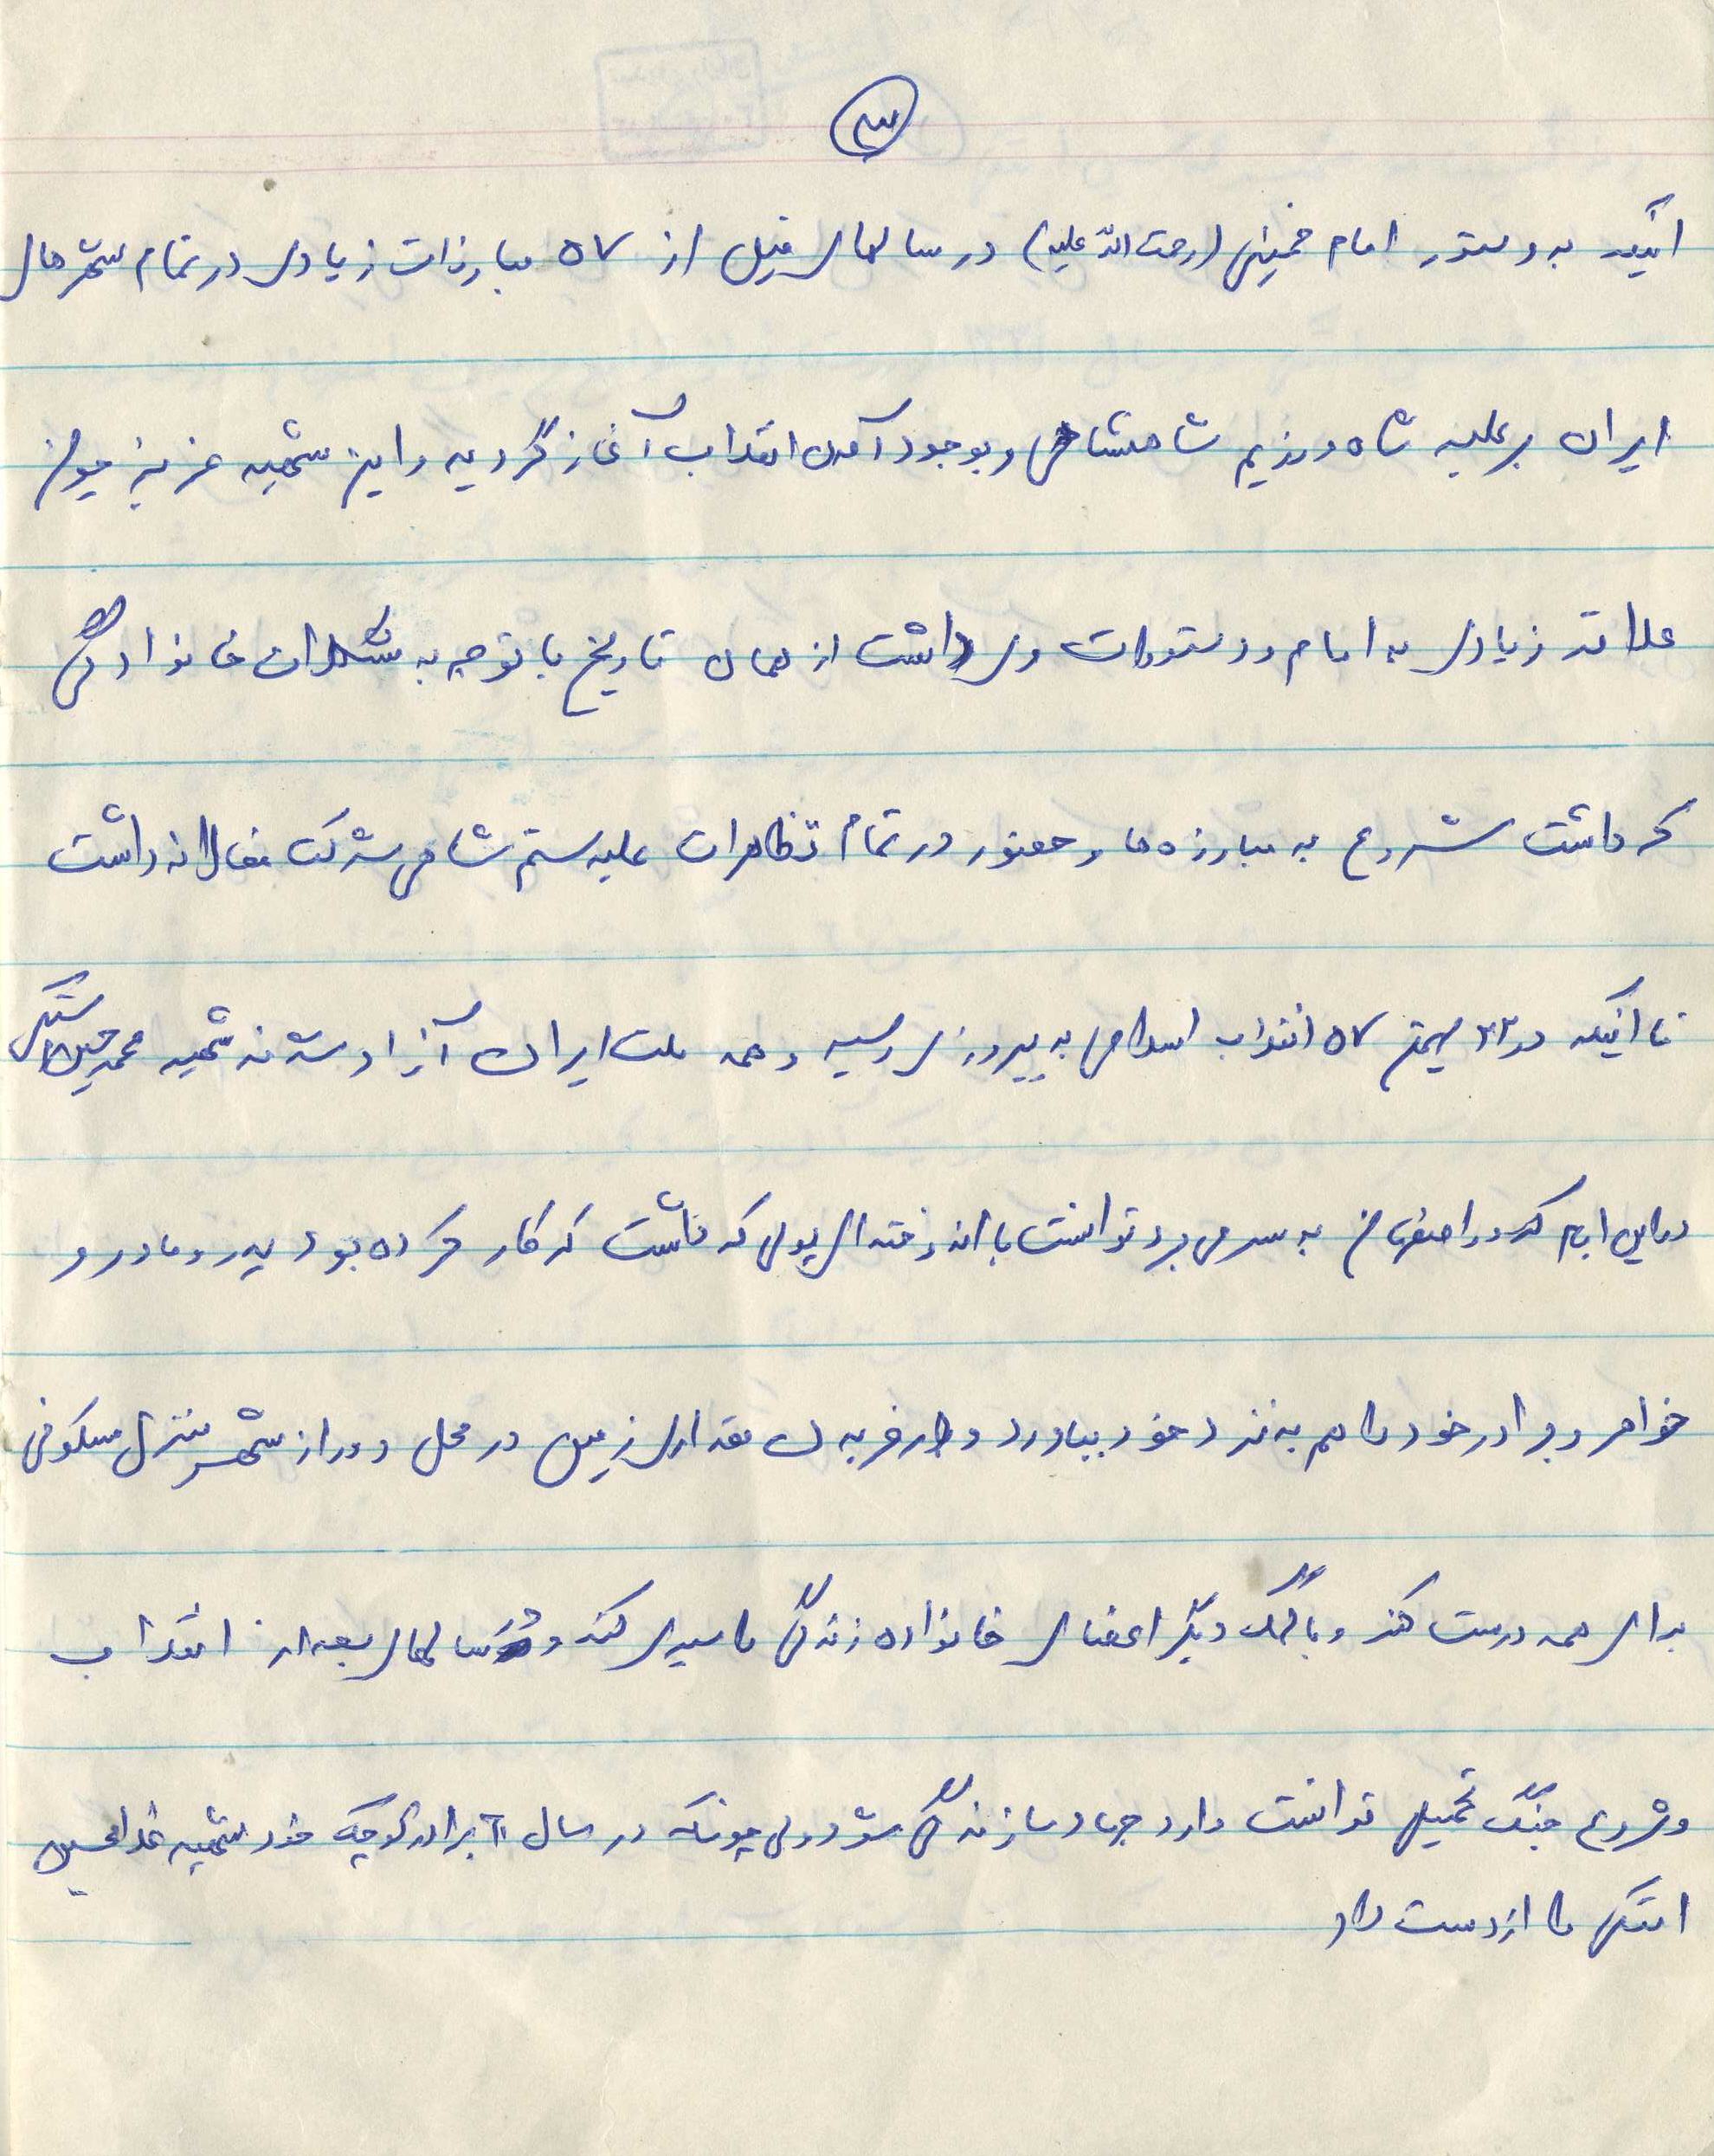 ۳
اینکه به دستور امام خمینی (رحمت الله علیه) در سالهای قبل از ۵۷ مبارزات زیادی در تمام شهرهای
ایران بر علیه شاه و رژیم شاهنشاهی و بوجود آمدن انقلاب آغاز گردید و این شهید عزیز چون
علاقه زیادی به امام و دستورات وی داشت از همان تاریخ با توجه به مشکلات خانوادگی
که داشت شروع به مبارزه ها و حضور در تمام تظاهرات علیه ستم شاهی شرکت فعالانه داشت
تا اینکه در ۲۲ بهمن ۵۷ انقلاب اسلامی به پیروزی رسید و همه ملت ایران آزاد شدند شهید محمدحسین
در این ایام که در اصفهان به سر می برد توانست با اندوخته ای پولی که داشت که کار کرده بود پدر و مادر و
خواهر و برادر خود را هم به نزد خود بیاورد و با خریدن مقداری زمین در محل دور از شهر منزل مسکونی
برای همه درست کند و با کمک دیگر اعضای خانواده زندگی را سپری کند و در سالهای بعد از انقلاب
و شروع جنگ تحمیلی توانست وارد جهاد سازندگی شود ولی چونکه در سال ۶۱ برادر کوچک خود شهید غلامحسین
را از دست داد